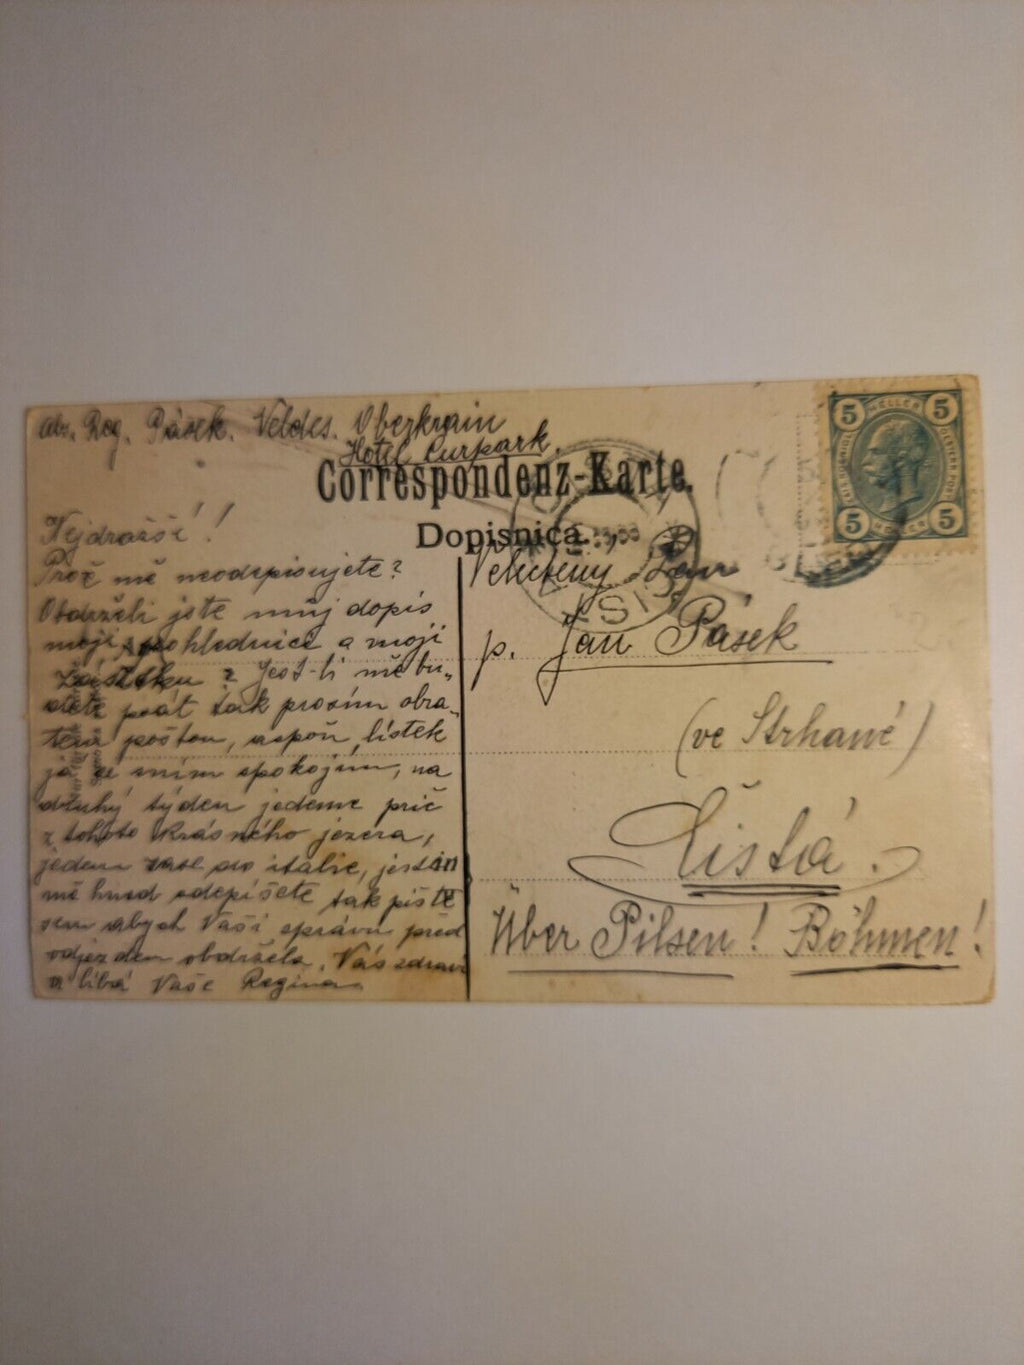 abs. Reg. Pásek. Veldes. Oberkrain
Hotel Curpark.
Correspondenz-Karte.
Dopisnica.
Nejdražší!!
Proč mě neodepisujete?
Obdrželi jste můj dopis
moji pohlednici a moji
zásilku? Jest-li mě bu„
dete psát tak prosím obra„
tem poštou, aspoň lístek
já se s ním spokojím, na
druhý týden jedeme prič
z tohoto krásného jezera,
jedem zase do italie, jestli
mě hned odepíšete tak pište
sem abych Vaší správu před
odjezdem obdržela. Vás zdraví
a líbá Vaše Regina
Velectěný Pan
p. Jan Pásek
(ve Strhané)
Čistá.
Über Pilsen! Böhmen!
5 HELLER 5
5 HELLER 5